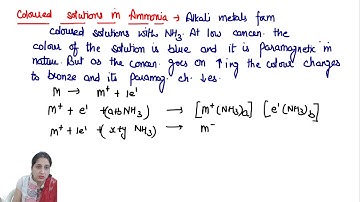 Coloured solutions in Ammonia → Alkali metals form
coloured solutions with NH3. At low concen. the
colour of the solution is blue and it is paramagnetic in
nature. But as the concen. goes on ↑ing the colour changes
to bronze and its paramag. ch. ↓es.
M → M+ + 1e'
M+ + e' + (a+b NH3) → [M+(NH3)a] [e'(NH3)b]
M+ + 1e' + (x+y NH3) → m-